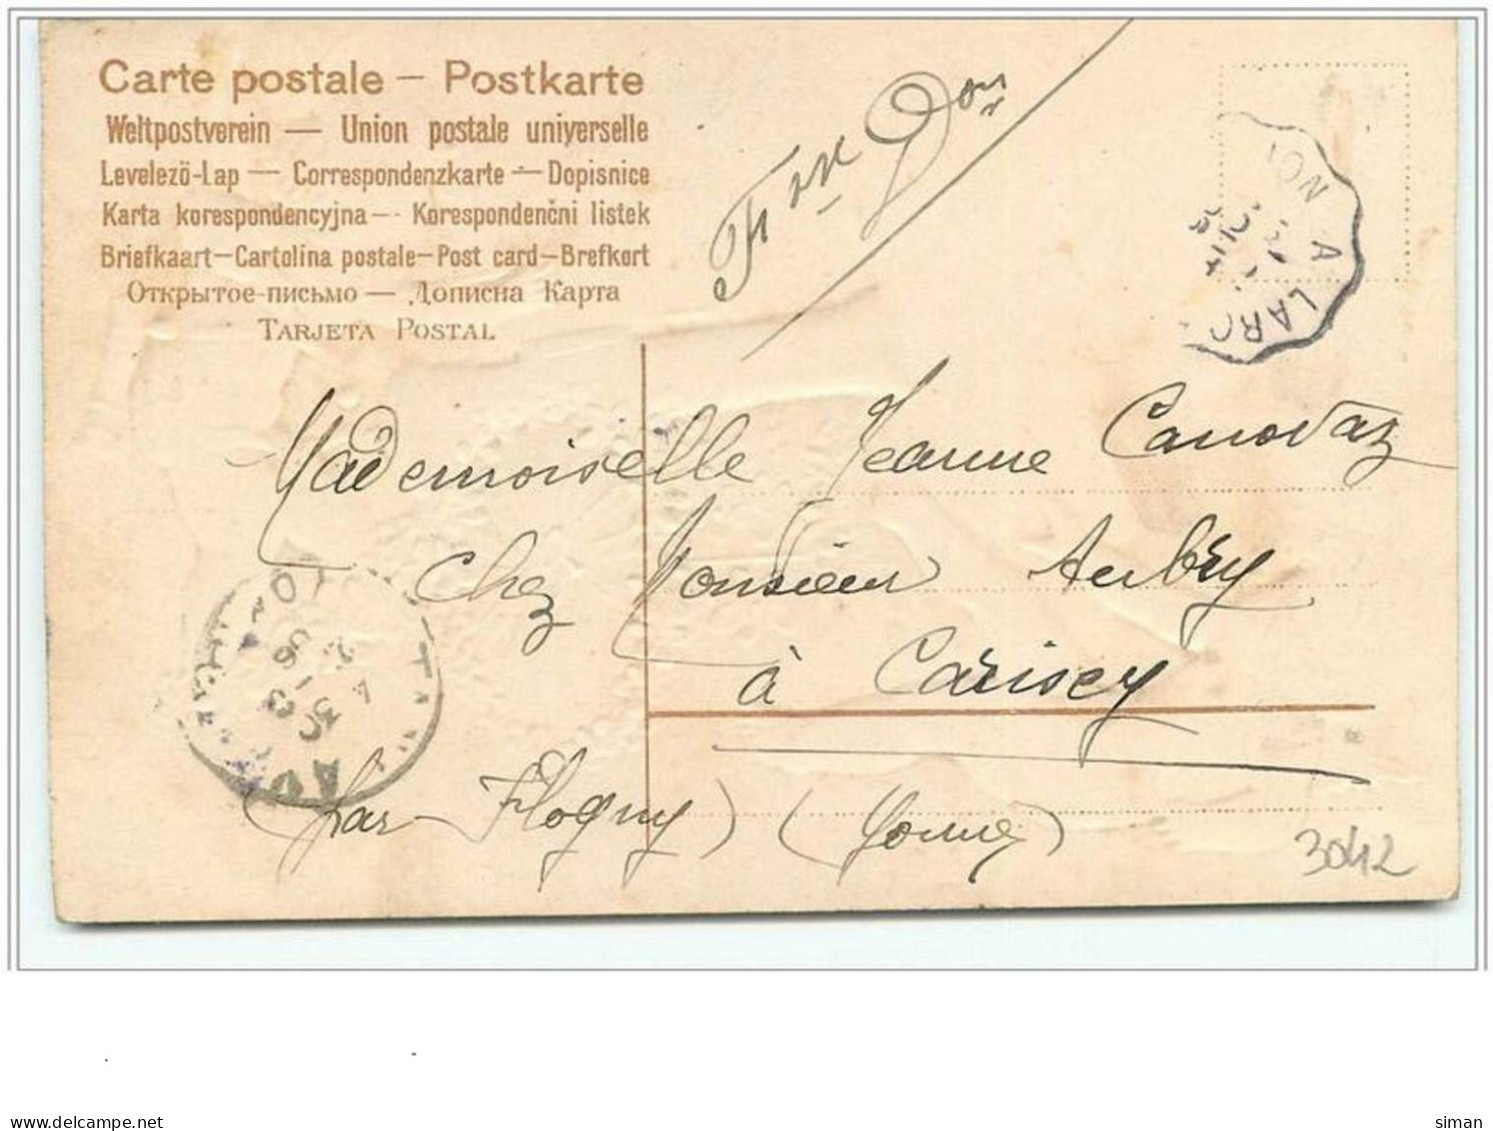 Carte postale – Postkarte
Weltpostverein — Union postale universelle
Levelezö-Lap — Correspondenzkarte — Dopisnice
Karta korespondencyjna — Korespondenční listek
Briefkaart—Cartolina postale—Post card—Brefkort
Открытое-письмо — Дописна Карта
TARJETA POSTAL
LARO
Mademoiselle Jeanne Canovaz
chez Monsieur Aubry
à Carisey
(par Flogny) (Yonne)
3042
numismatic-store.com
siman